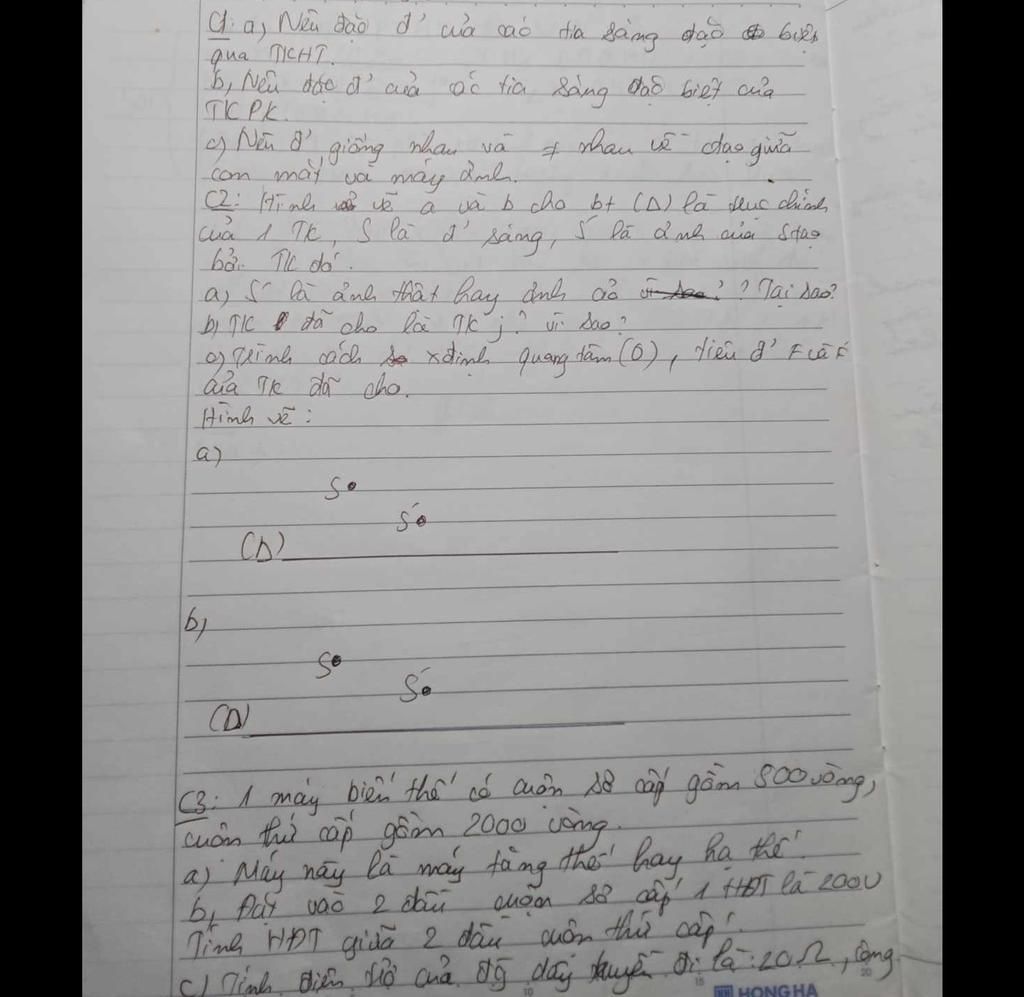 C1: a, Nêu đặc đ' của các tia sáng đặc biệt
qua TKHT.
b, Nêu đặc đ' của các tia sáng đặc biệt của
TKPK.
c) Nêu đ' giống nhau và ≠ nhau về ctạo giữa
con mắt và máy ảnh.
C2: Hình vẽ a và b cho bt (Δ) là trục chính
của 1 TK, S là đ' sáng, S' là ảnh của S tạo
bởi TK đó.
a) S' là ảnh thật hay ảnh ảo ? Tại sao?
b) TK đã cho là TK j? vì sao?
c) Trình cách xđịnh quang tâm (O), tiêu đ' F và F'
của TK đã cho.
Hình vẽ:
a)
S
S'
(Δ)
b,
S
S'
(Δ)
C3: 1 máy biến thế có cuộn sơ cấp gồm 800 vòng,
cuộn thứ cấp gồm 2000 vòng.
a) Máy này là máy tăng thế hay hạ thế.
b, Đặt vào 2 đầu cuộn sơ cấp 1 HĐT là 200V
Tính HĐT giữa 2 đầu cuộn thứ cấp.
c) Tính điện trở của đg dây truyền đi là: 20Ω, công
10 15 20
HONG HA